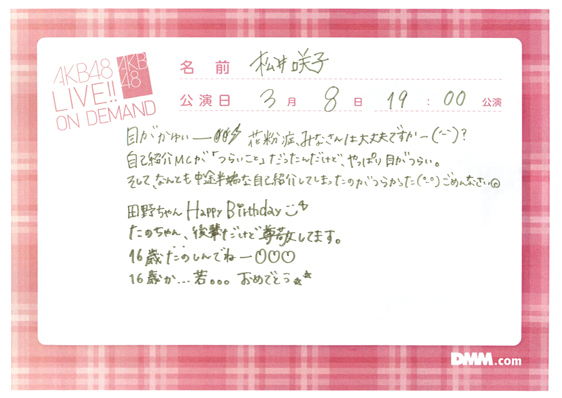 AKB48
LIVE!!
ON DEMAND
AKB
48
名 前 松井咲子
公演日 3月 8日 19:00 公演
目がかゆいー 花粉症、みなさんは大丈夫ですかー(´ｰ`)?
自己紹介MCが「つらいこと」だったんだけど、やっぱり目がつらい。
そして、なんとも中途半端な自己紹介してしまったのがつらかった(°-°)ごめんなさい
田野ちゃん Happy Birthday
たのちゃん、後輩だけど尊敬してます。
16歳たのしんでねー○○○
16歳か...若。。。おめでとう
DMM.com